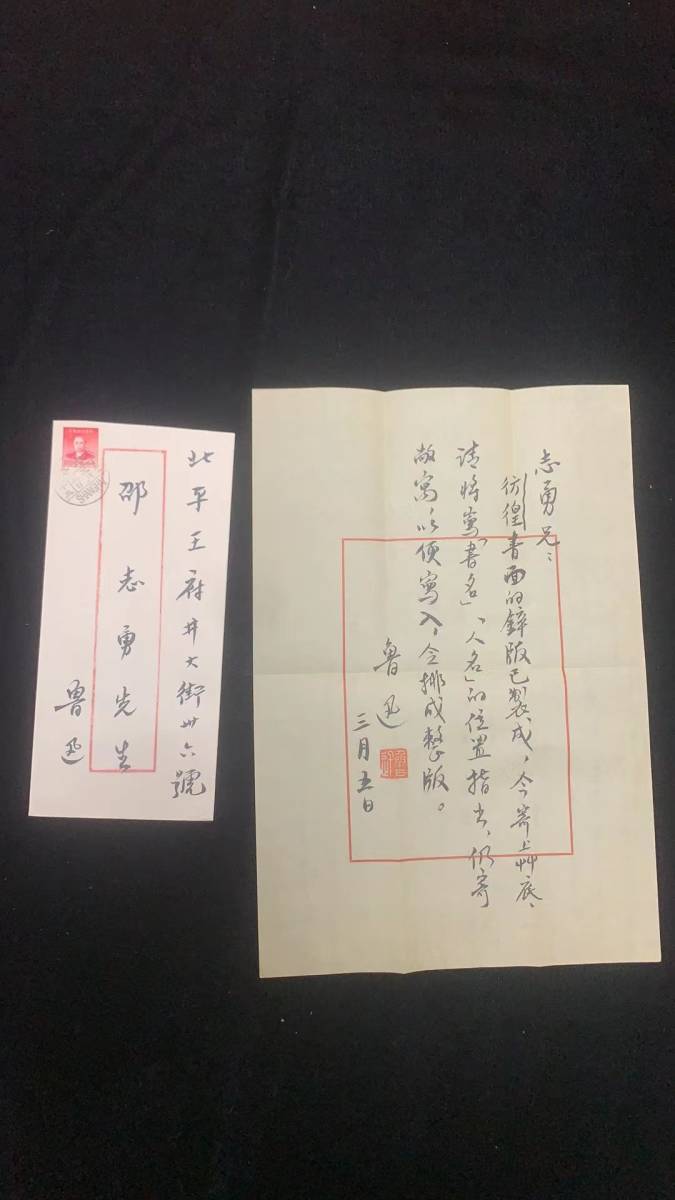 北平王府井大街卅六號
邵志勇先生
魯迅
志勇兄：
彷徨書面的鋅版已製成，今寄上艸底、
請將寫「書名」、「人名」的位置指出，仍寄
敝寓，以便寫入，令排成整版。
魯迅
三月五日